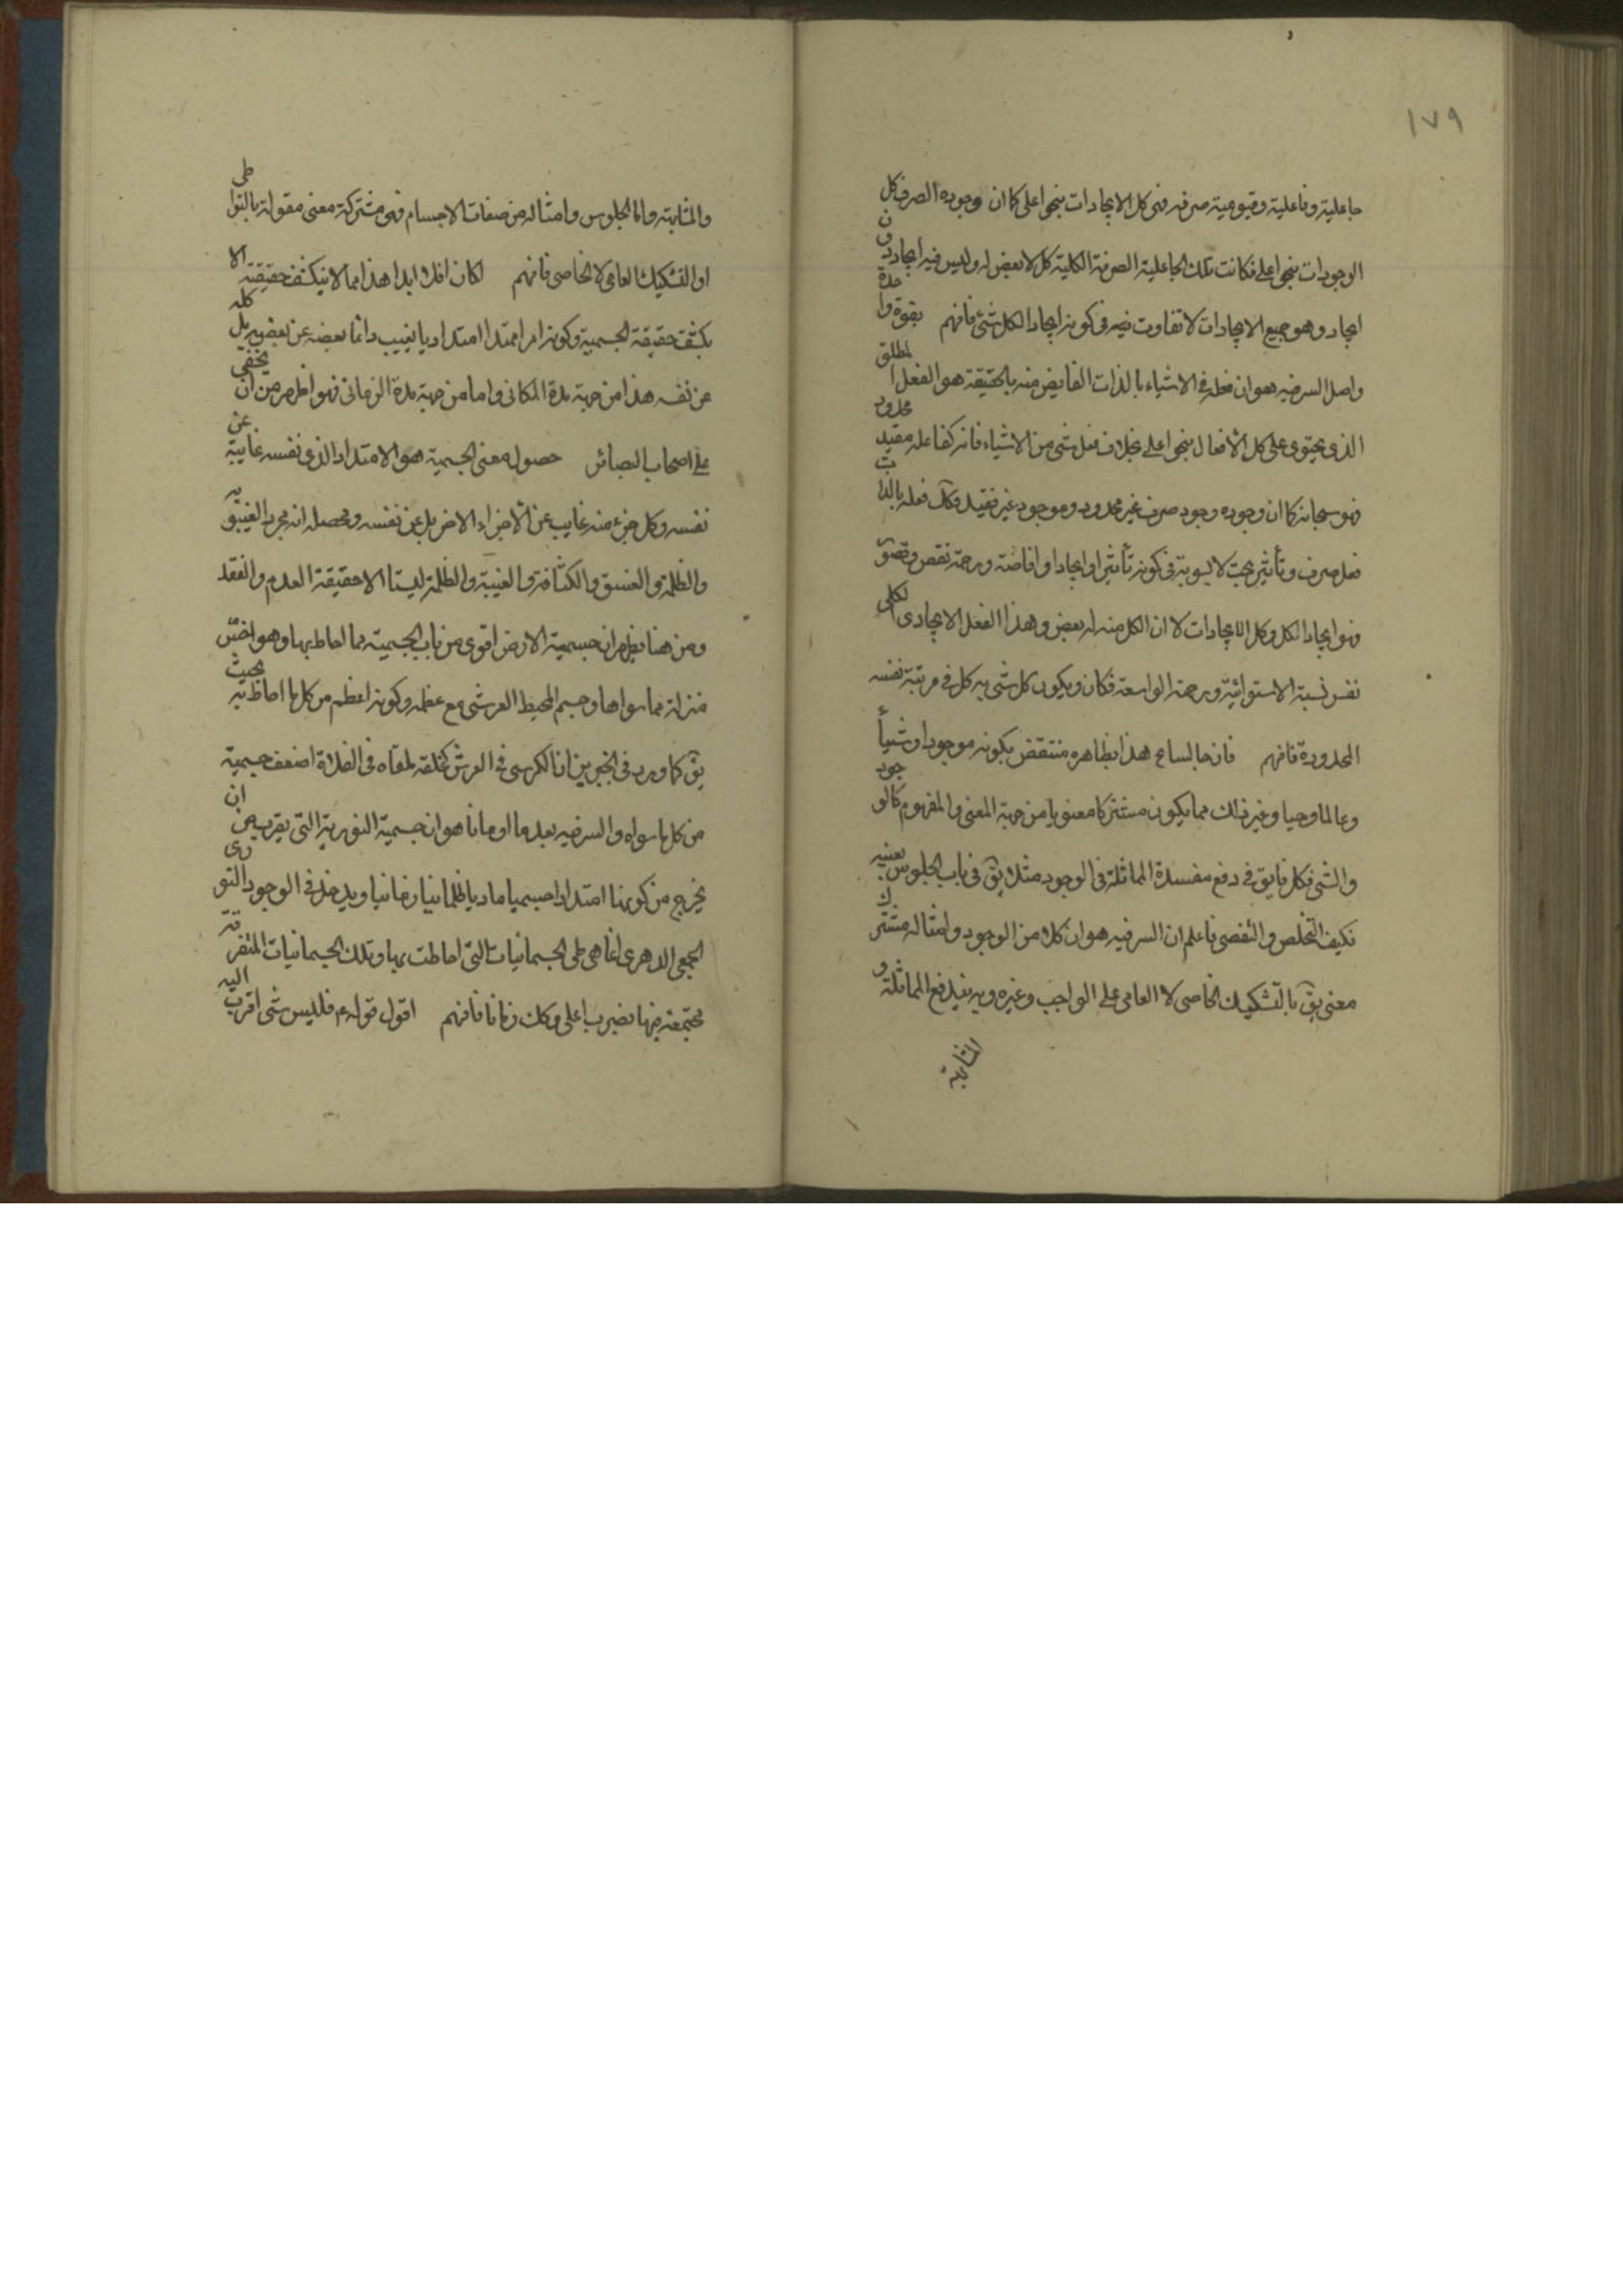 ١٧٩
جاعلية وفاعلية وقيومية صرفه فهى كل الايجادات بنحو اعلى كما ان وجوده الصرف كل
الوجودات بنحو اعلى فكانت تلك الجاعلية الصرفة الكلية كل لا بعض له وليس فيه ايجاد دون
ايجاد وهو جميع الايجادات لا تفاوت فيه فى كونه ايجادا لكل شئ فافهم بقوة واحدة
واصل السر فيه هو ان فعله فى الاشياء بالذات الفايض منه بالحقيقة هو الفعل المطلق
الذى يحتوى على كل الأفعال بنحو اعلى بخلاف فعل شى من الاشياء فانه كفاعله مقيد محدود
فهو سبحانه كما ان وجوده وجود صرف غير محدود وموجود غير فقيد وكك فعله بالذات
فعل صرف وتأثير بحت لا يشوبه فى كونه تأثيرا وايجادا وافاضة ورحمة نقص وقصور
فهو ايجاد الكل وكل الايجادات لا ان الكل منه له بعض وهذا الفعل الايجادى الكلى
نفس نسبة الاستوائية ورحمته الواسعة فكان ويكون كل شى به كل فى مرتبة نفسه
المحدودة فافهم فان هذا بظاهره منتقض بكونه موجودا وشيأ
وعالما وحيا وغير ذلك مما يكون مشتركا معنويا من جهة المعنى والمفهوم كالوجود
والشئ فكل ما يق فى دفع مفسدة المماثلة فى الوجود مثلا يق فى باب الجلوس بعينه
فكيف التخلص والتفصى فاعلم ان السر فيه هو ان كلا من الوجود وامثاله مشترك
معنى يق بالتشكيك الخاصى لا العامى على الواجب وغيره وبه يندفع المماثلة و
المشابهة
والمشابهة واما الجلوس وامثاله من صفات الاجسام فهى مشتركة معنى مقولة بالتواطى
او التشكيك العامى لا الخاصى فافهم لكان افلا ابدا هذا مما لا ينكشف حقيقته الا
بكشف حقيقة الجسمية وكونه امرا ممتدا امتداديا يغيب دائما بعضه عن بعضه بل كله
عن نفسه هذا من جهة مدة المكانى واما من جهة مدة الزمانى فهو اظهر من ان يخفى
على اصحاب البصائر حصوله معنى الجسمية هو الامتداد الذى نفسه غايبة عن
نفسه وكل جزء منه غايب عن الأجزاء الاخر بل عن نفسه ومحصله انه مجرد الغيبة
والظلمة والغسق والكثافة والغيبة والظلمة ليستا الا حقيقة العدم والفقد
ومن هنا يظهر ان جسمية الارض اقوى من باب الجسمية مما احاط بها وهو اخس
منزلة مما سواها وجسم المحيط العرشى مع عظمه وكونه اعظم من كل ما احاط به بحيث
يق كما ورد فى الخبر من ان الكرسى فى العرش كحلقة ملقاه فى الفلاة اضعف جسمية
من كل ما سواه والسر فيه بعد ما اومانا هو ان جسمية النورية التى يقرب من ان
يخرج من كونها امتدادا جسميا ماديا ظلمانيا زمانيا ويدخل فى الوجود النورى
الجمعى الدهرى انما هى طى الجسمانيات التى احاطت بها وتلك الجسمانيات المتفرقة
مجتمعة فيها بضرب اعلى وكك زمانا فافهم اقول قوله ع فليس شى اقرب اليه